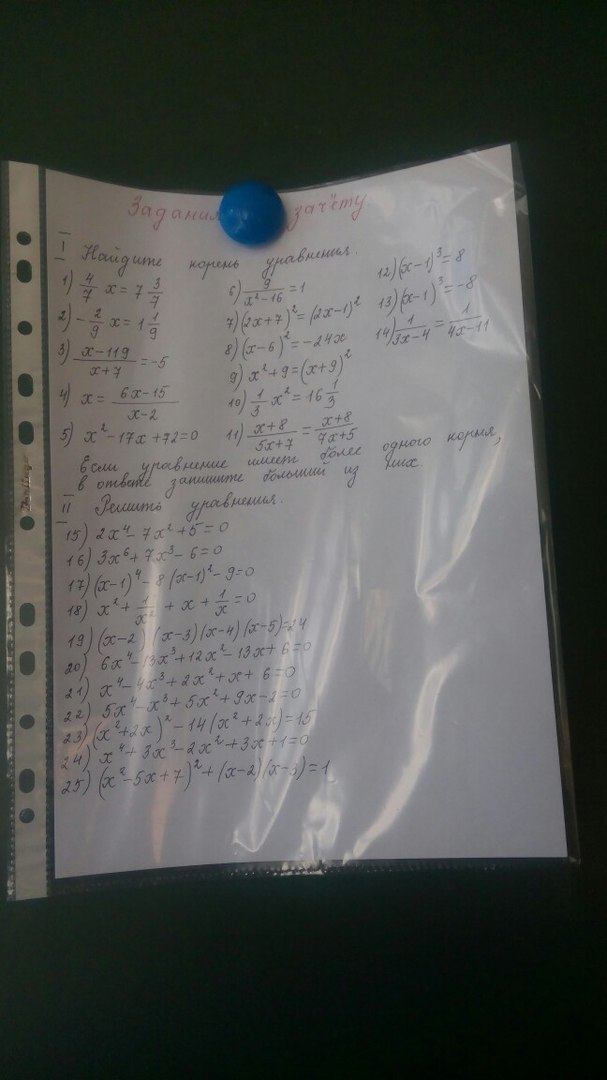 Задания зачёту.
I Найдите корень уравнения.
1) 4/7 x = 7 3/7
2) -2/9 x = 1 1/9
3) (x-119)/(x+7) = -5
4) x = (6x-15)/(x-2)
5) x²-17x+72=0
6) 9/(x²-16) = 1
7) (2x+7)² = (2x-1)²
8) (x-6)² = -24x
9) x²+9=(x+9)²
10) 1/3 x² = 16 1/3
11) (x+8)/(5x+7) = (x+8)/(7x+5)
12) (x-1)³ = 8
13) (x-1)³ = -8
14) 1/(3x-4) = 1/(4x-11)
Если уравнение имеет более одного корня,
в ответе запишите больший из них.
II Решить уравнения.
15) 2x⁴-7x²+5=0
16) 3x⁶+7x³-6=0
17) (x-1)⁴-8(x-1)²-9=0
18) x² + 1/x² + x + 1/x = 0
19) (x-2)(x-3)(x-4)(x-5)=24
20) 6x⁴-13x³+12x²-13x+6=0
21) x⁴-4x³+2x²+x+6=0
22) 5x⁴-x³+5x²+9x-2=0
23) (x²+2x)²-14(x²+2x)=15
24) x⁴+3x³-2x²+3x+1=0
25) (x²-5x+7)²+(x-2)(x-3)=1